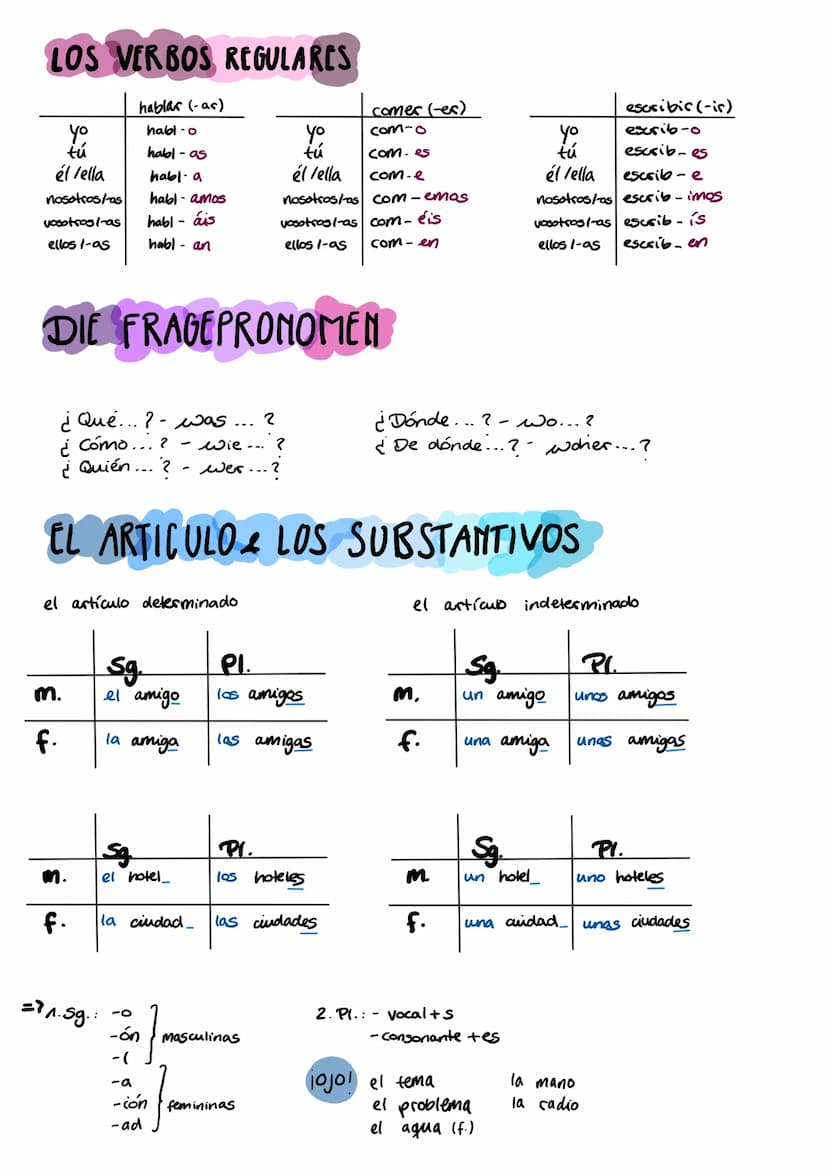 LOS VERBOS REGULARES
hablar (-ar) comer (-er) escribir (-ir)
yo habl-o yo com-o yo escrib-o
tú habl-as tú com-es tú escrib-es
él/ella habl-a él/ella com-e él/ella escrib-e
nosotros/-as habl-amos nosotros/-as com-emos nosotros/-as escrib-imos
vosotros/-as habl-áis vosotros/-as com-éis vosotros/-as escrib-ís
ellos/-as habl-an ellos/-as com-en ellos/-as escrib-en
DIE FRAGEPRONOMEN
¿Qué...? - was ... ? ¿Dónde...? - wo...?
¿Cómo...? - wie ... ? ¿De dónde...? - woher...?
¿Quién...? - wer...?
EL ARTICULO & LOS SUBSTANTIVOS
el artículo determinado el artículo indeterminado
Sg. Pl. Sg. Pl.
m. el amigo los amigos m. un amigo unos amigos
f. la amiga las amigas f. una amiga unas amigas
Sg. Pl. Sg. Pl.
m. el hotel_ los hoteles m un hotel_ uno hoteles
f. la ciudad_ las ciudades f. una cuidad_ unas ciudades
=> 1. Sg.: -o 2. Pl.: - vocal+s
-ón masculinas - consonante +es
-l
-a ¡OJO! el tema la mano
-ión femininas el problema la radio
-ad el agua (f.)